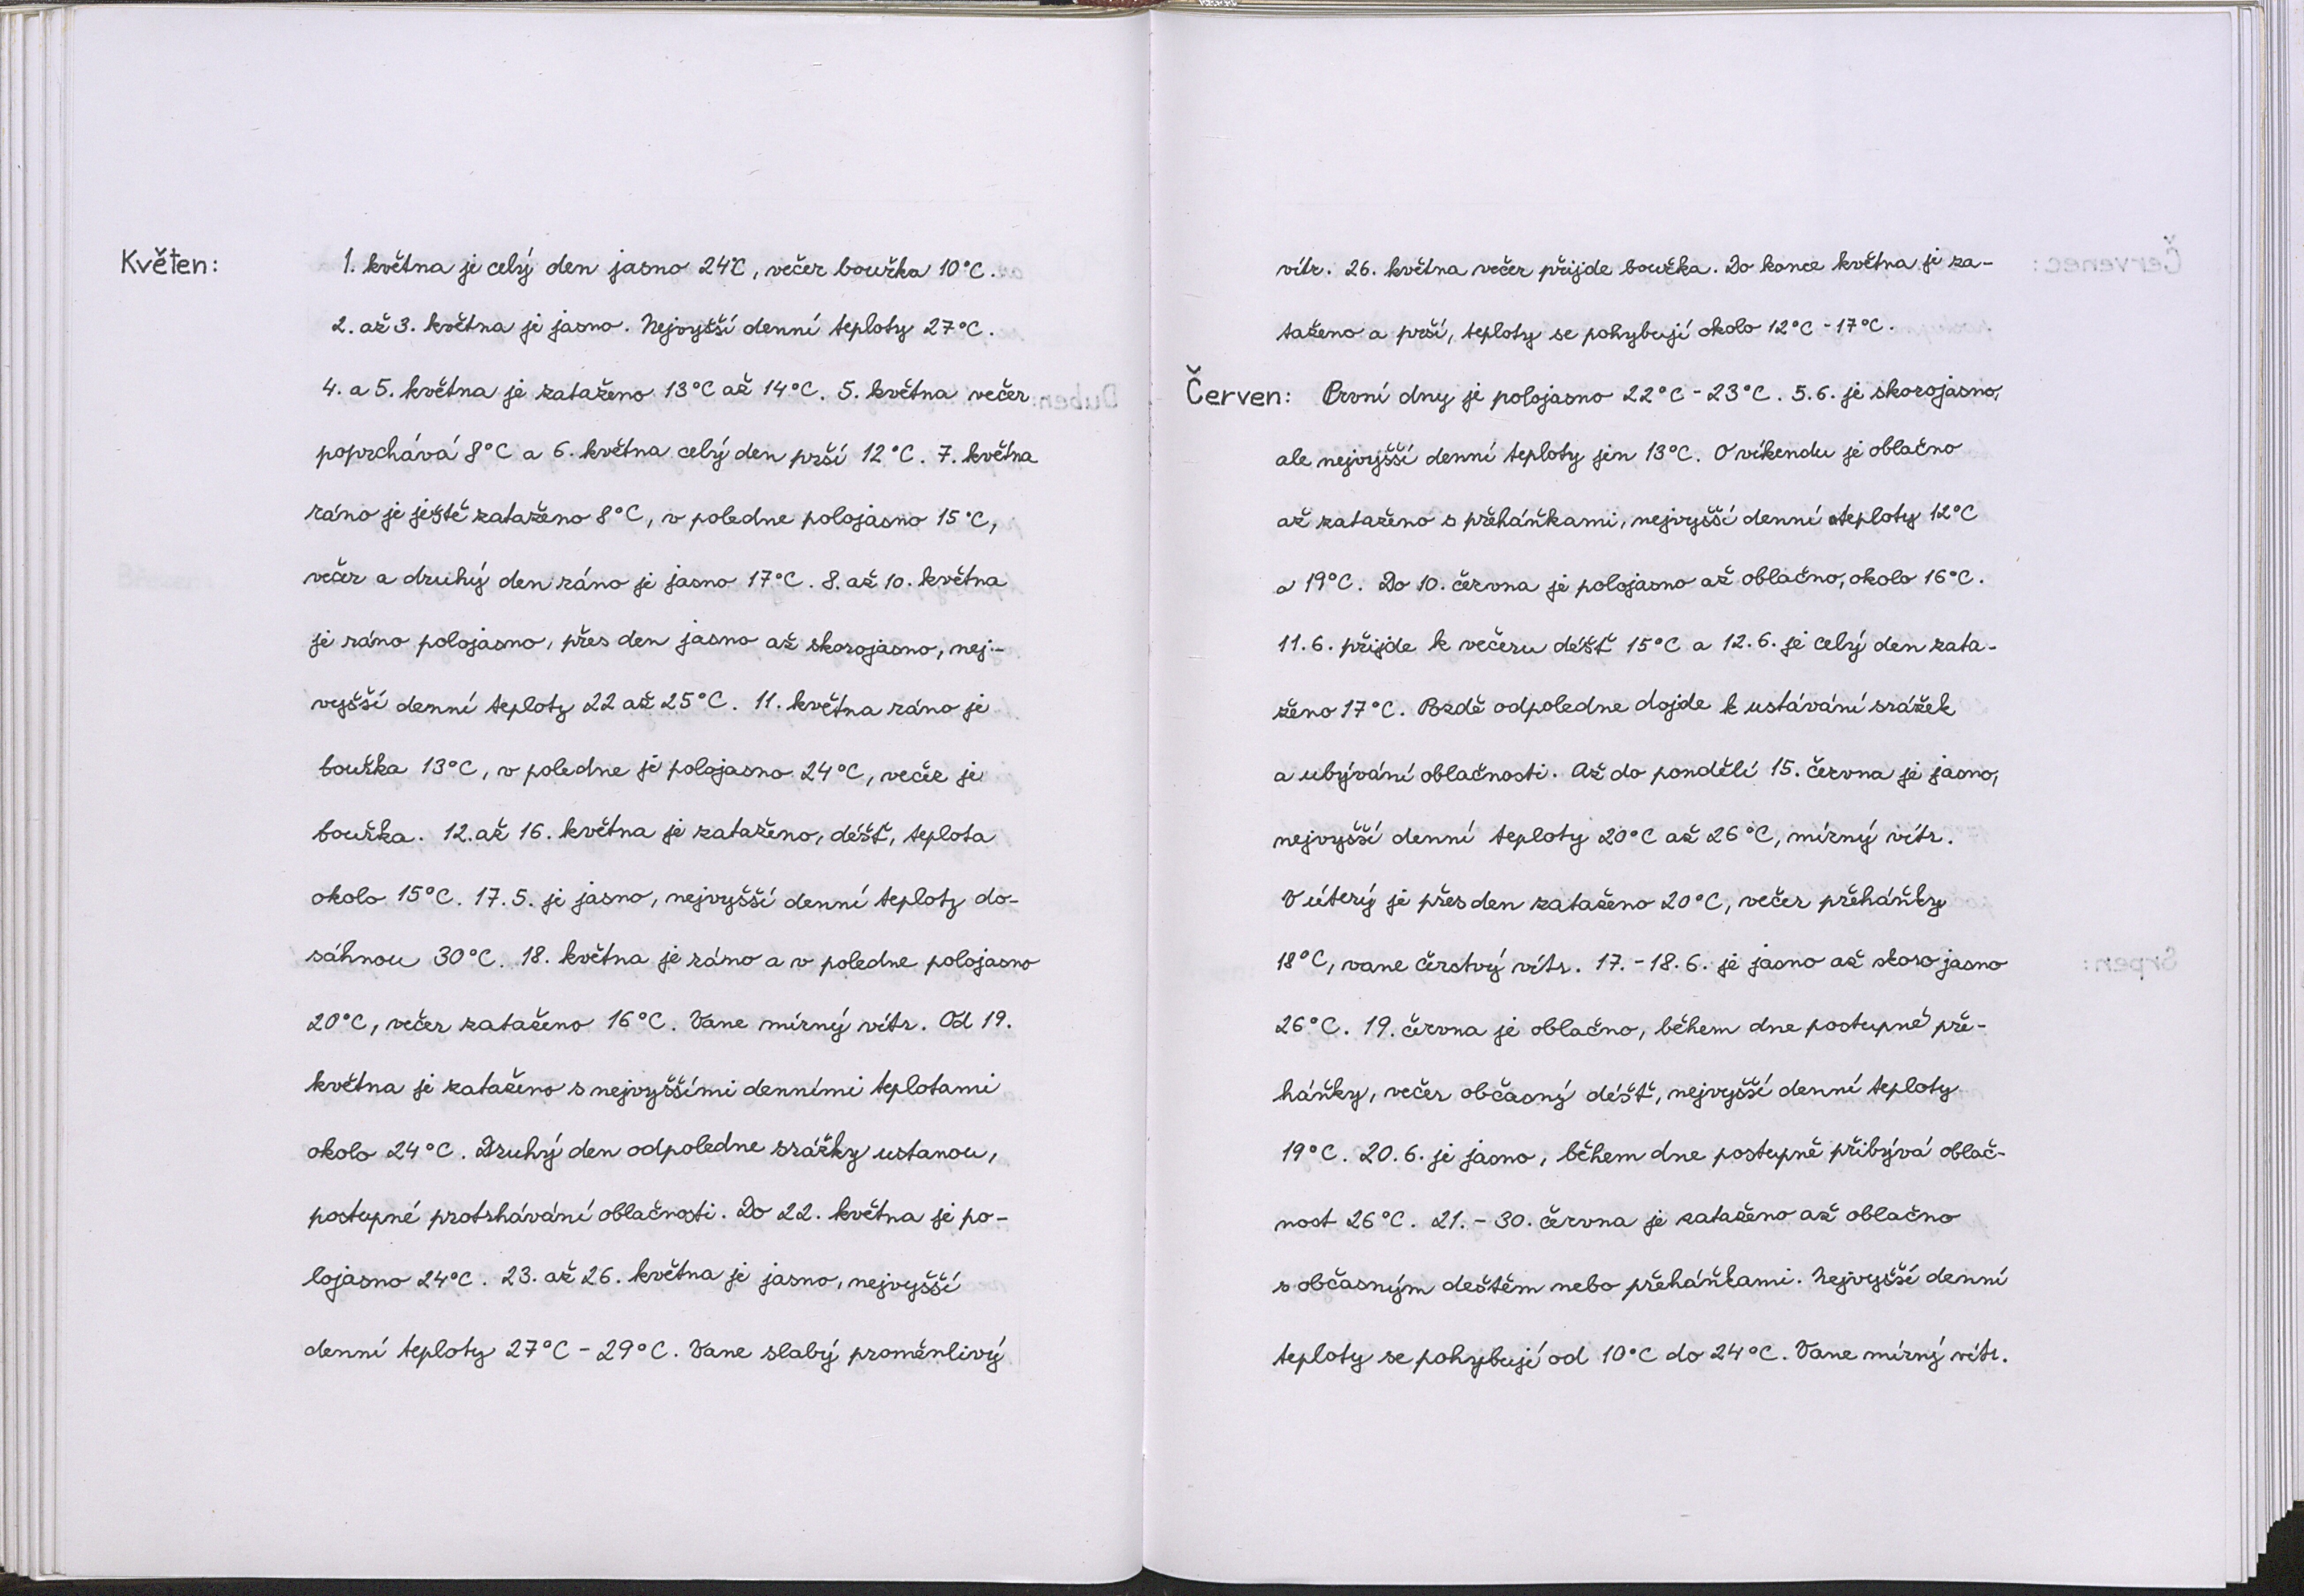 Květen: 1. května je celý den jasno 24°C, večer bouřka 10°C.
2. až 3. května je jasno. Nejvyšší denní teploty 27°C.
4. a 5. května je zataženo 13°C až 14°C. 5. května večer
poprchává 8°C a 6. května celý den prší 12°C. 7. května
ráno je ještě zataženo 8°C, v poledne polojasno 15°C,
večer a druhý den ráno je jasno 17°C. 8. až 10. května
je ráno polojasno, přes den jasno až skorojasno, nej-
vyšší denní teploty 22 až 25°C. 11. května ráno je
bouřka 13°C, v poledne je polojasno 24°C, večer je
bouřka. 12. až 16. května je zataženo, déšť, teplota
okolo 15°C. 17.5. je jasno, nejvyšší denní teploty do-
sáhnou 30°C. 18. května je ráno a v poledne polojasno
20°C, večer zataženo 16°C. Vane mírný vítr. Od 19.
května je zataženo s nejvyššími denními teplotami
okolo 24°C. Druhý den odpoledne srážky ustanou,
postupné protrhávání oblačnosti. Do 22. května je po-
lojasno 24°C. 23. až 26. května je jasno, nejvyšší
denní teploty 27°C - 29°C. Vane slabý proměnlivý
vítr. 26. května večer přijde bouřka. Do konce května je za-
taženo a prší, teploty se pohybují okolo 12°C - 17°C.
Červen: První dny je polojasno 22°C - 23°C. 5.6. je skorojasno,
ale nejvyšší denní teploty jen 13°C. O víkendu je oblačno
až zataženo s přeháňkami, nejvyšší denní teploty 12°C
a 19°C. Do 10. června je polojasno až oblačno, okolo 16°C.
11.6. přijde k večeru déšť 15°C a 12.6. je celý den zata-
ženo 17°C. Pozdě odpoledne dojde k ustávání srážek
a ubývání oblačnosti. Až do pondělí 15. června je jasno,
nejvyšší denní teploty 20°C až 26°C, mírný vítr.
V úterý je přes den zataženo 20°C, večer přeháňky
18°C, vane čerstvý vítr. 17. - 18.6. je jasno až skoro jasno
26°C. 19. června je oblačno, během dne postupné pře-
háňky, večer občasný déšť, nejvyšší denní teploty
19°C. 20.6. je jasno, během dne postupně přibývá oblač-
nost 26°C. 21. - 30. června je zataženo až oblačno
s občasným deštěm nebo přeháňkami. Nejvyšší denní
teploty se pohybují od 10°C do 24°C. Vane mírný vítr.